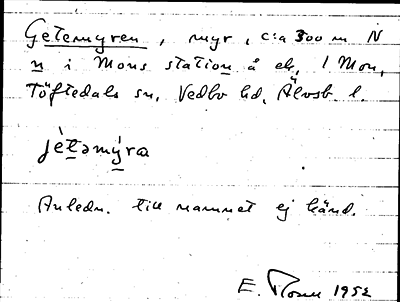 Getemyren, myr, c:a 300 m N
n i Mons station å ek, 1 Mon,
Töftedals sn, Vedbo hd, Älvsb. l.
jètəmỳra
Anledn. till namnet ej känd.
E. 1952